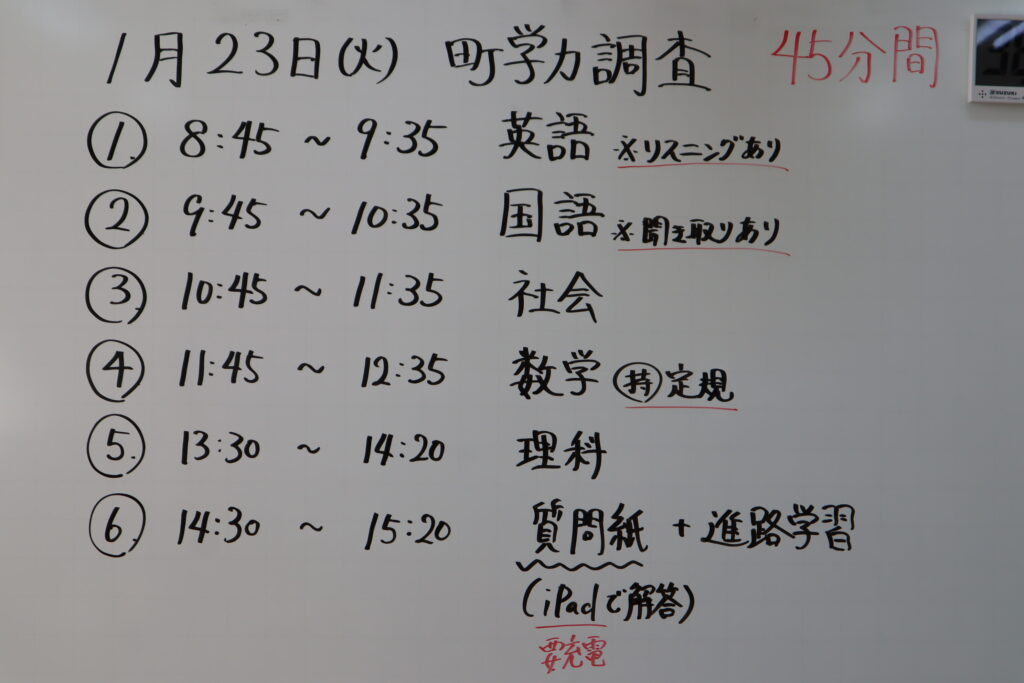 1月23日(火) 町学力調査 45分間
① 8:45 ~ 9:35 英語 ※リスニングあり
② 9:45 ~ 10:35 国語 ※聞き取りあり
③ 10:45 ~ 11:35 社会
④ 11:45 ~ 12:35 数学 ㊑定規
⑤ 13:30 ~ 14:20 理科
⑥ 14:30 ~ 15:20 質問紙 + 進路学習
(iPadで解答)
要充電
SUZUKI